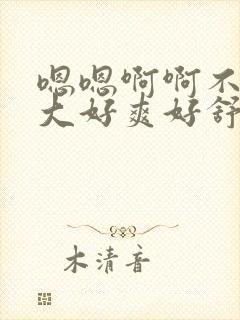 嗯嗯啊啊不
大好爽好舒
木清音